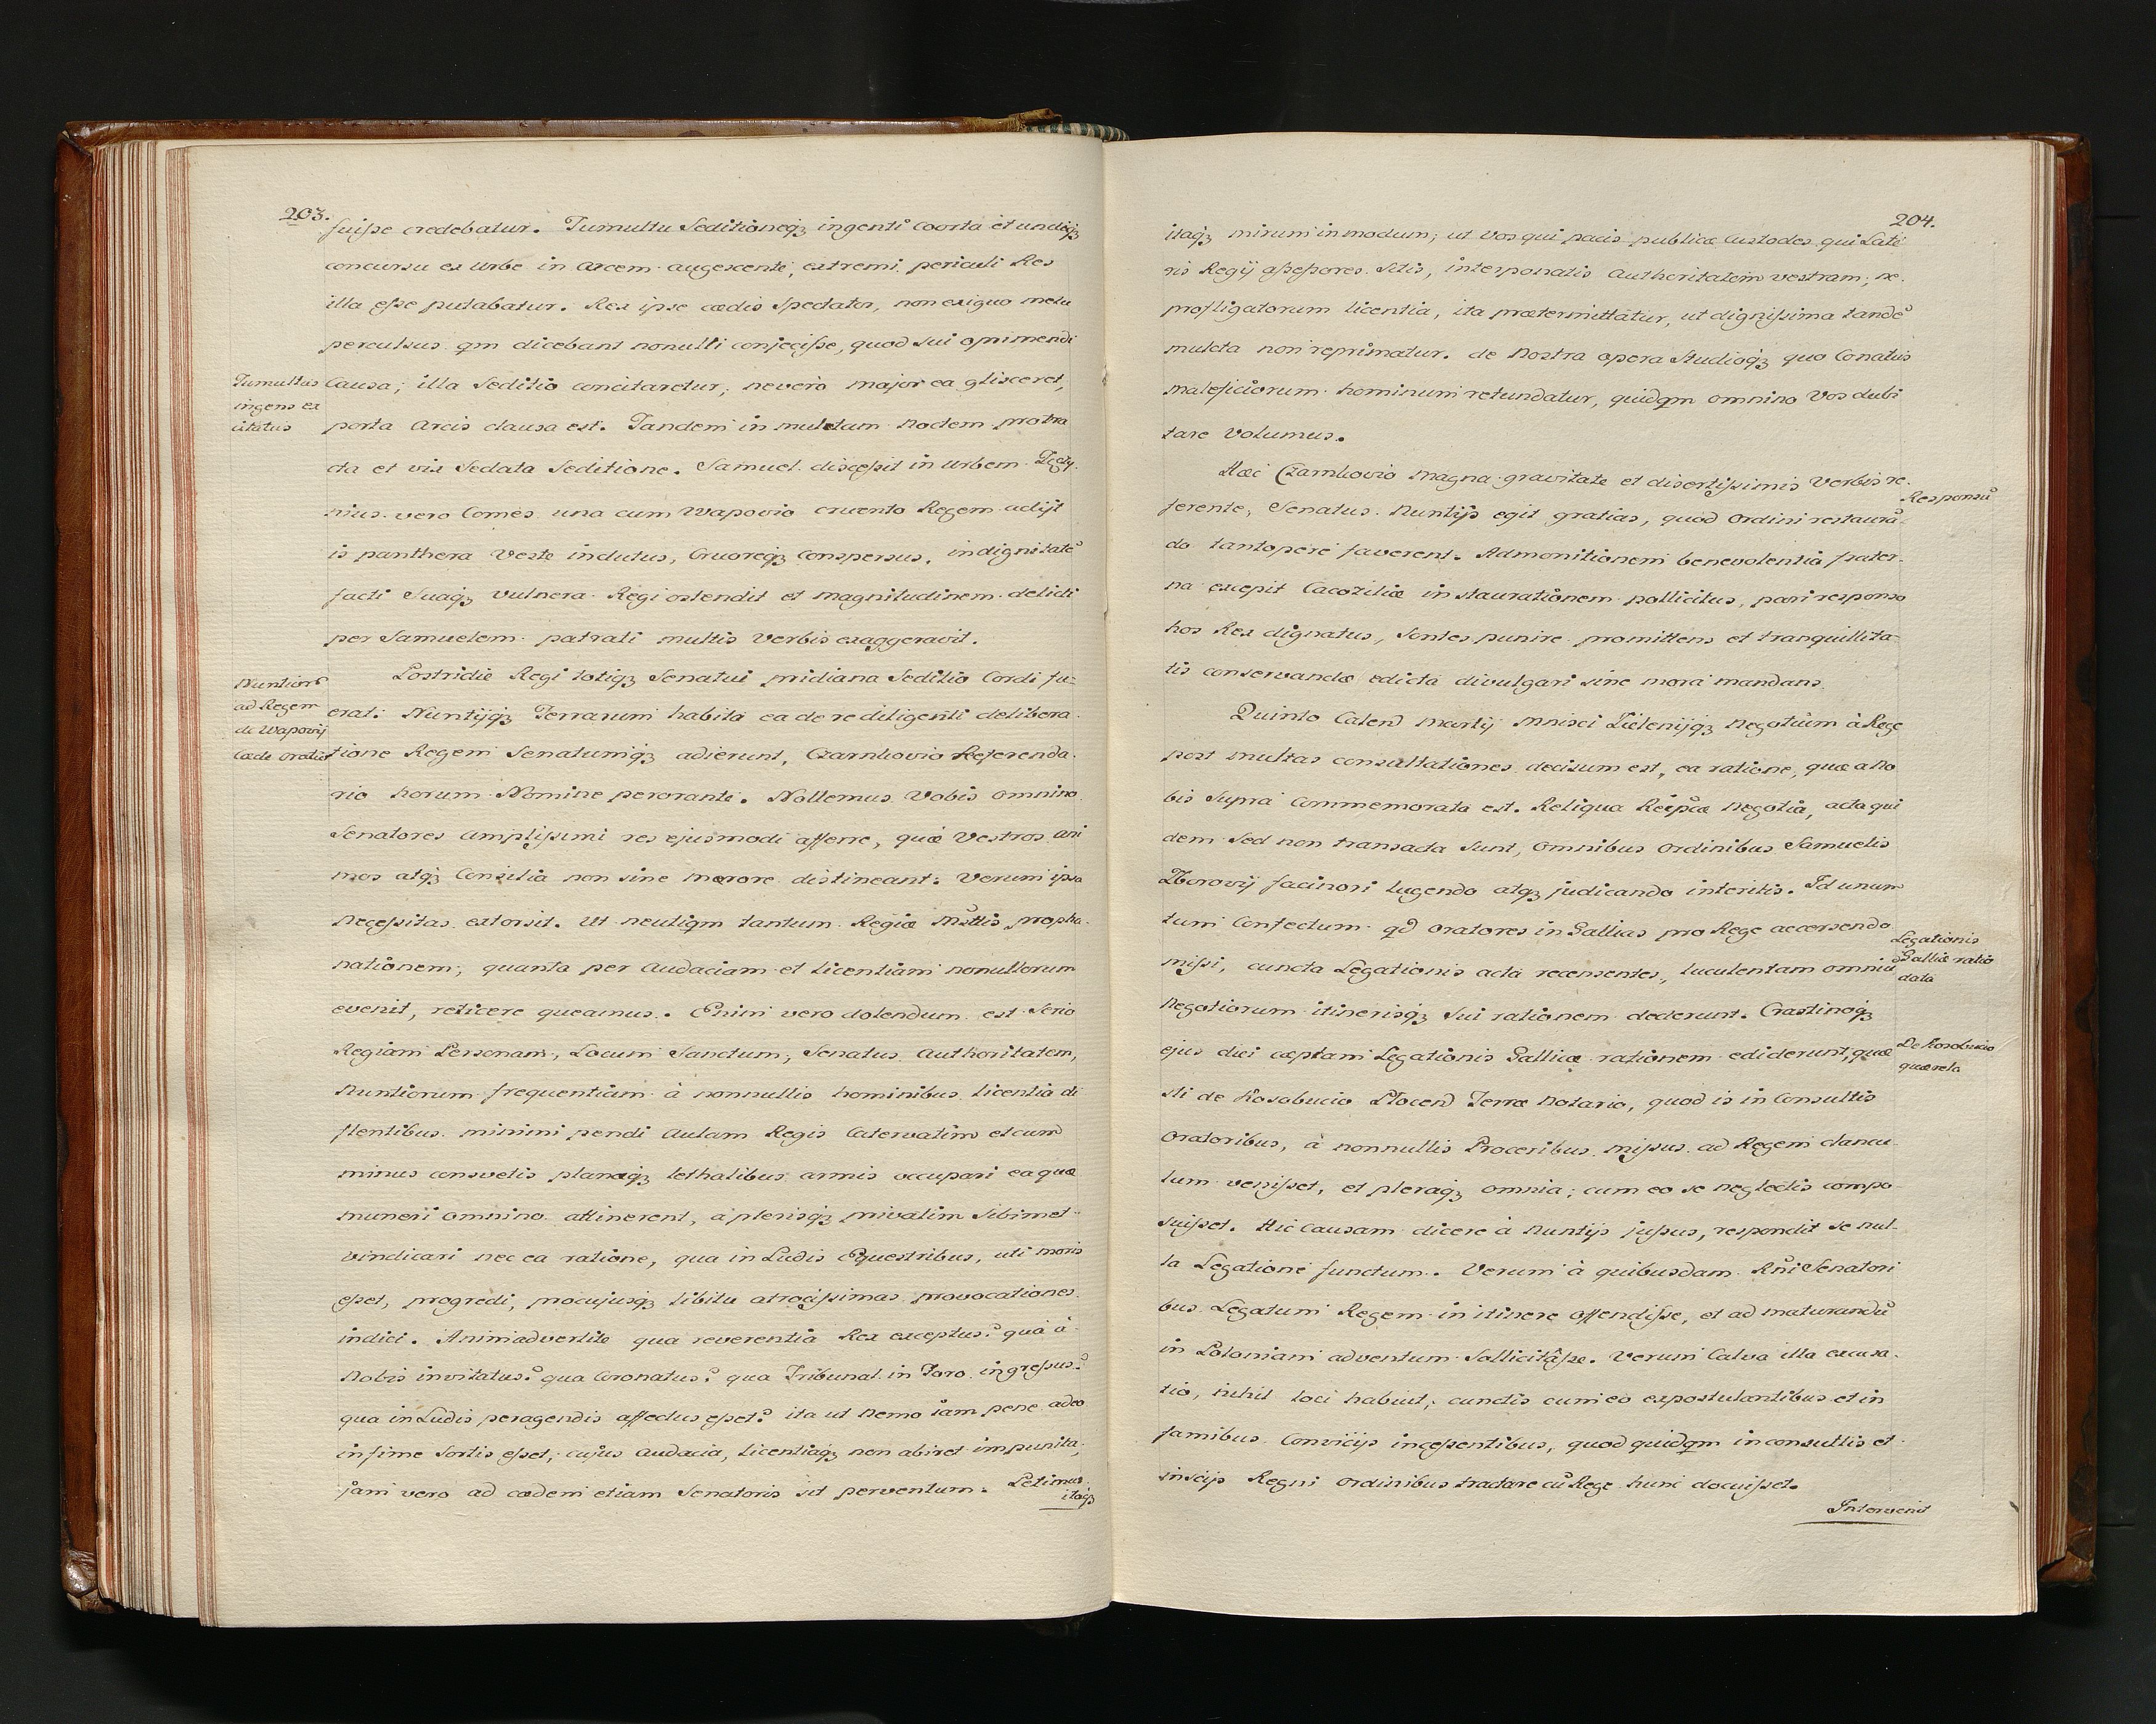 203.
fuiſse credebatur. Tumultu Seditioneqꝫ ingenti Coorta et undiqꝫ
concursu ex Urbe in Arcem augescente, extremi periculi Res
illa eſse putabatur. Rex ipse cædis Spectator, non exiguo metu
perculsus qm dicebant nonulli conjeciſse, quod sui opprimendi
Tumultus
ingens ex
citatus
Causa; illa Seditio concitaretur, ne vero major ea glisceret,
porta Arcis clausa est. Tandem in multam Noctem protra
cta et vix Sedata Seditione. Samuel disceſsit in Urbem. Tęczy.
nius vero Comes una cum Wapovio cruento Regem adijt
is panthera Veste indutus, Cruoreqꝫ Conspersus, indignitatē
facti Suaqꝫ Vulnera Regi ostendit et magnitudinem delicti
per Samuelem patrati multis Verbis exaggeravit.
Nuntiorū
ad Regem
de Wapovij
Cæde oratio
Postridie Regi totiqꝫ Senatui pridiana Seditio Cordi fu=
erat: Nuntijqꝫ Terrarum habita ea de re diligenti delibera
tione Regem Senatumqꝫ adierunt, Czarnkovio Referenda.
rio horum Nomine perorante. Nollemus Vobis omnino
Senatores Ampliſsimi res ejusmodi afferre, quæ Vestros ani
mos atqꝫ Consilia non sine mærore distineant: Verum ipsa
Neceſsitas extorsit. Ut neutiqm tantum Regiæ Mttis propha.
nationem; quanta per Audaciam et Licentiam nonullorum
evenit, reticere queamus. Enim vero dolendum est Serio
Regiam Personam, Locum Sanctum, Senatus Authoritatem,
Nuntiorum frequentiam à nonnullis hominibus licentia di
flentibus minimi pendi Aulam Regis Catervatim et cum
minus consvetis planeqꝫ lethalibus armis occupari ea quæ
muneri omnino attinerent, à plerisqꝫ privatim Sibimet
vindicari nec ea ratione, qua in Ludis Equestribus, uti moris
eſset, progredi, procujusqꝫ libitu atrociſsimas provocationes
indici. Animadvertite qua reverentia Rex exceptus? qua à
Nobis invitatus? qua Coronatus? qua Tribunal in Foro ingreſsus?
qua in Ludis peragendis affectus eſset? ita ut Nemo iam pene adeo
infime Sortis eſset, cujus Audacia, Licentiaqꝫ non abiret impunita,
jam vero ad cædem etiam Senatoris sit perventum. Petimus
itaqꝫ
204.
itaqꝫ mirum in modum; ut Vos qui pacis publicæ Custodes qui Late
ris Regij aſseſsores Sitis, interponatis Authoritatem vestram; ne.
profligatorum licentia, ita prætermittatur, ut digniſsima tandē
mulcta non reprimatur. de Nostra opera Studioqꝫ quo Conatus
maleficiorum hominum retundatur, quidqm omnino Vos dubi
tare Volumus.
Hæc Czarnkovio magna gravitate et disertiſsimis Verbis re.
Responsū
ferente, Senatus Nuntijs egit gratias, quod Ordini restaurā
do tantopere faverent. Admonitionem benevolentia pater.
na excepit Cacoziliæ instaurationem pollicitus, pari responso
hos Rex dignatus, Sontes punire promittens et tranquillita=
tis conservandæ edicta divulgari sine mora mandans.
Quinto Calend Martij Mnisci Zielenijqꝫ Negotium à Rege
post multas consultationes decisum est, ea ratione, quæ a No
bis Supra Commemorata est. Reliqua Reipcæ Negotia, acta qui
dem Sed non transacta Sunt, Omnibus Ordinibus Samuelis
Zborovij facinori lugendo atqꝫ judicando intentis. Id unum
tum Confectum qd Oratores in Gallias pro Rege accersendo
Legationis
Galliæ ratio
data
miſsi, cuncta Legationis acta recensentes, luculentam omniū
Negotiorum itinerisqꝫ Sui rationem dederunt. Crastinoqꝫ
ejus diei cæptam Legationis Gallicæ rationem ediderunt, quæ
De Kosobucio
querela
sti de Kosobucio Plocen Terræ Notario, quod is in Consultis
Oratoribus, à nonnullis Proceribus miſsus ad Regem clancu
lum veniſset, et pleraqꝫ omnia; cum eo se neglectis compo
suiſset. Hic Causam dicere à Nuntijs juſsus, respondit se nul=
la Legatione functum. Verum à quibusdam Rni Senatori
bus Legatum Regem in itinere offendiſse, et ad maturandū
in Poloniam adventum Sollicitâſse. Verum Calva illa excusa.
tio, nihil loci habuit, cunctis cum eo expostulantibus et in
famibus Convicijs inceſsentibus, quod quidqm inconsultis et
inscijs Regni Ordinibus tractare cū Rege hunc docuiſset.
Intervenit